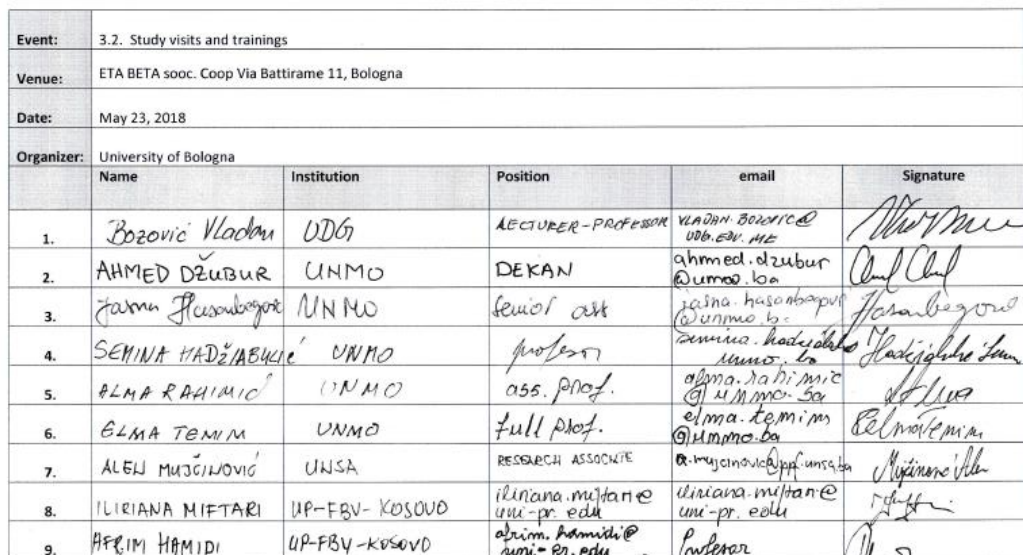 Event: 3.2. Study visits and trainings
Venue: ETA BETA sooc. Coop Via Battirame 11, Bologna
Date: May 23, 2018
Organizer: University of Bologna
Name Institution Position email Signature
1. Bozović Vladan UDG LECTURER-PROFESSOR VLADAN.BOZOVIC@
UDG.EDU.ME
2. AHMED DŽUBUR UNMO DEKAN ahmed.dzubur
@unmo.ba
3. Jasna Hasanbegović UNMO Senior ass jasna.hasanbegovic
@unmo.ba Hasanbegović
4. SEMINA HADŽIABULIĆ UNMO profesor semina.hadziabulic
unmo.ba
5. ALMA RAHIMIĆ UNMO ass. prof. alma.rahimic
@unmo.ba
6. ELMA TEMIM UNMO full prof. elma.temim
@unmo.ba Elma Temim
7. ALEN MUJČINOVIĆ UNSA RESEARCH ASSOCIATE a.mujcinovic@ppf.unsa.ba
8. ILIRIANA MIFTARI UP-FBV-KOSOVO iliriana.miftari@
uni-pr.edu iliriana.miftari@
uni-pr.edu
9. AFRIM HAMIDI UP-FBV-KOSOVO afrim.hamidi@
uni-pr.edu Profesor